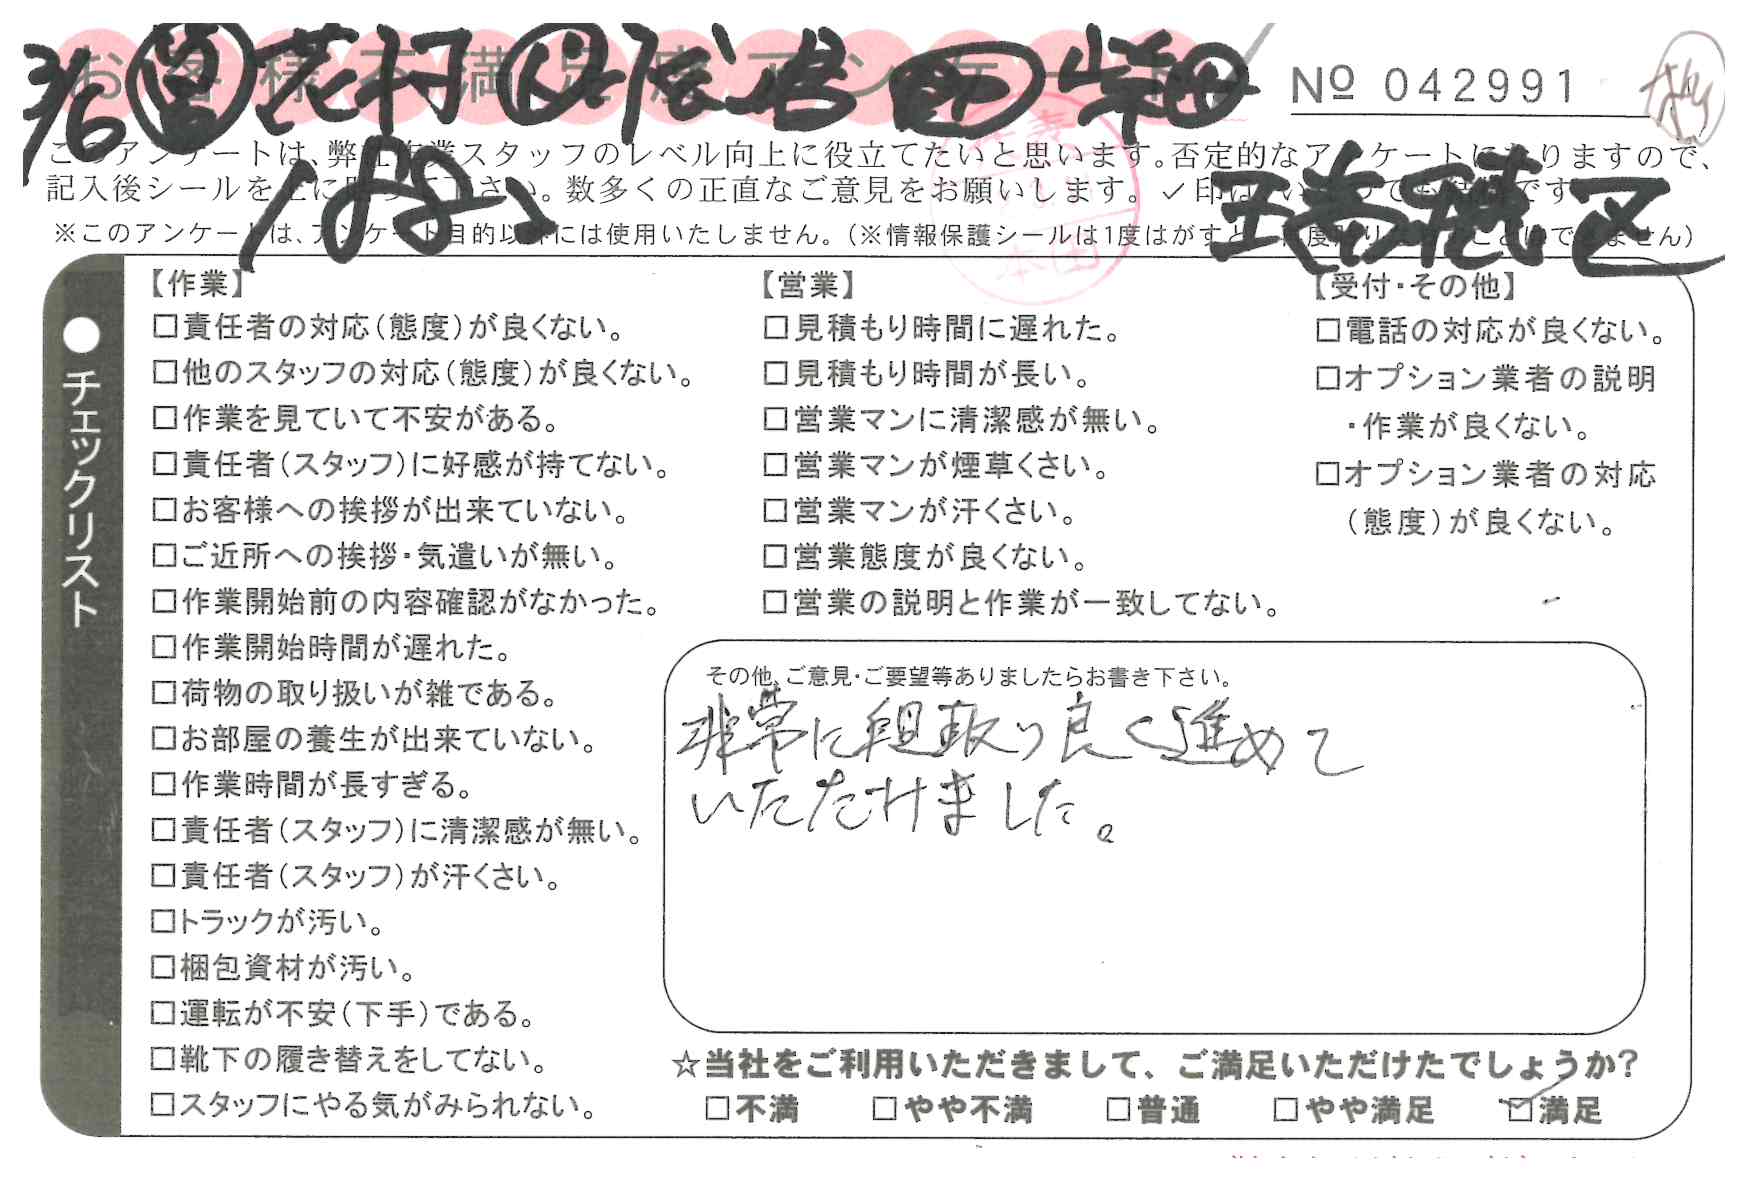 お客様不満足度アンケート
№ 042991
3/6 営 花村
柴田
このアンケートは、弊社作業スタッフのレベル向上に役立てたいと思います。否定的なアンケートになりますので、
記入後シールを上に貼って下さい。数多くの正直なご意見をお願いします。✓印はいくつでも結構です
瑞穂区
※このアンケートは、アンケート目的以外には使用いたしません。(※情報保護シールは1度はがすと、再度貼り
チェックリスト
【作業】
□責任者の対応(態度)が良くない。
□他のスタッフの対応(態度)が良くない。
□作業を見ていて不安がある。
□責任者(スタッフ)に好感が持てない。
□お客様への挨拶が出来ていない。
□ご近所への挨拶・気遣いが無い。
□作業開始前の内容確認がなかった。
□作業開始時間が遅れた。
□荷物の取り扱いが雑である。
□お部屋の養生が出来ていない。
□作業時間が長すぎる。
□責任者(スタッフ)に清潔感が無い。
□責任者(スタッフ)が汗くさい。
□トラックが汚い。
□梱包資材が汚い。
□運転が不安(下手)である。
□靴下の履き替えをしてない。
□スタッフにやる気がみられない。
【営業】
□見積もり時間に遅れた。
□見積もり時間が長い。
□営業マンに清潔感が無い。
□営業マンが煙草くさい。
□営業マンが汗くさい。
□営業態度が良くない。
□営業の説明と作業が一致してない。
【受付・その他】
□電話の対応が良くない。
□オプション業者の説明
・作業が良くない。
□オプション業者の対応
(態度)が良くない。
その他、ご意見・ご要望等ありましたらお書き下さい。
非常に段取り良く進めて
いただけました。
☆当社をご利用いただきまして、ご満足いただけたでしょうか?
□不満 □やや不満 □普通 □やや満足 ☑満足